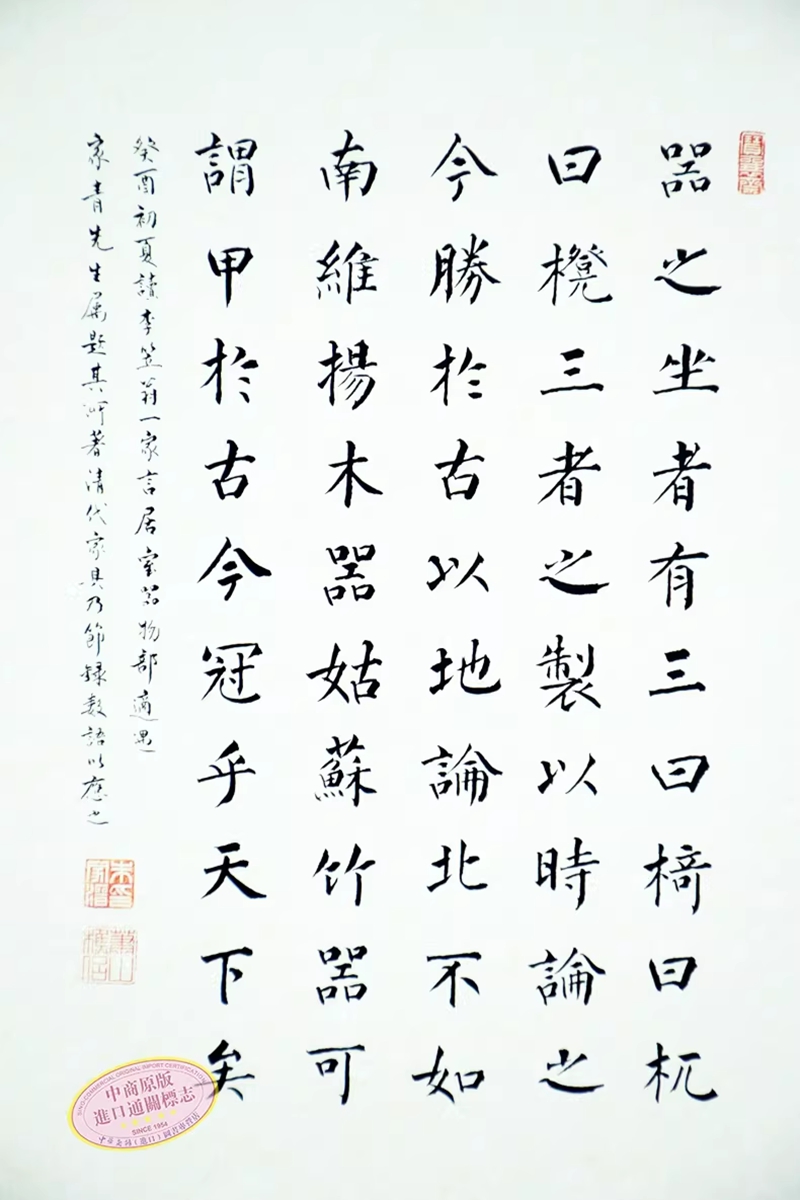 器之坐者有三曰椅曰杌
曰櫈三者之製以時論之
今勝於古以地論北不如
南維揚木器姑蘇竹器可
謂甲於古今冠乎天下矣
癸酉初夏讀李笠翁一家言居室器物部適遇
家青先生属題其所著清代家具乃節録數語以應之
中商原版
進口通關標志
SINCE 1954